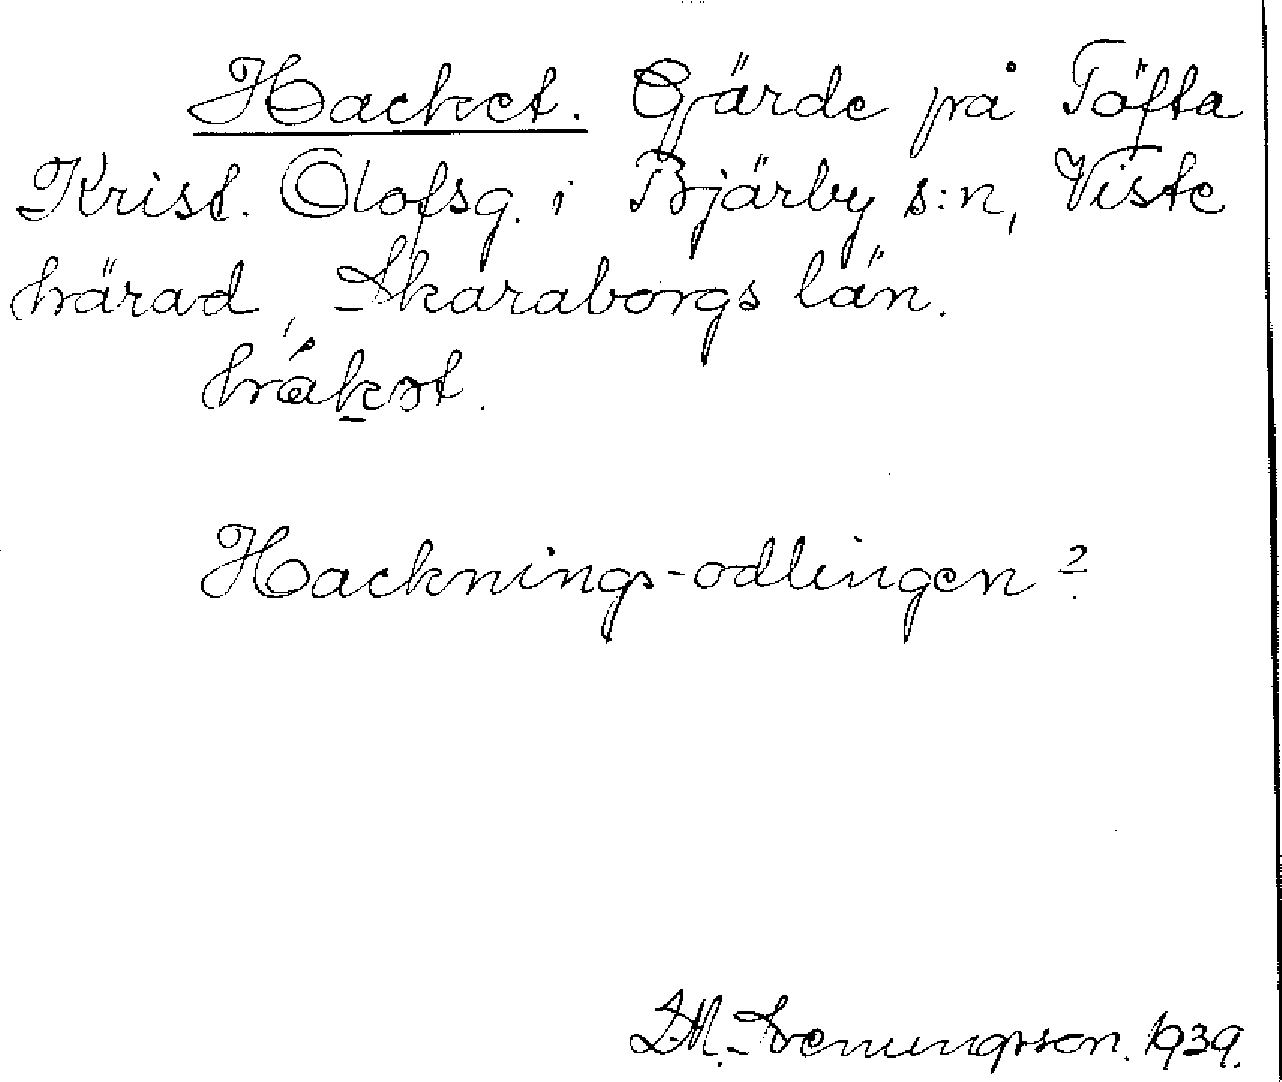 Hacket. Gärde på Töfta
Krist. Olofsg. i Bjärby s:n, Viste
härad, Skaraborgs län.
Hacknings-odlingen?
1939.